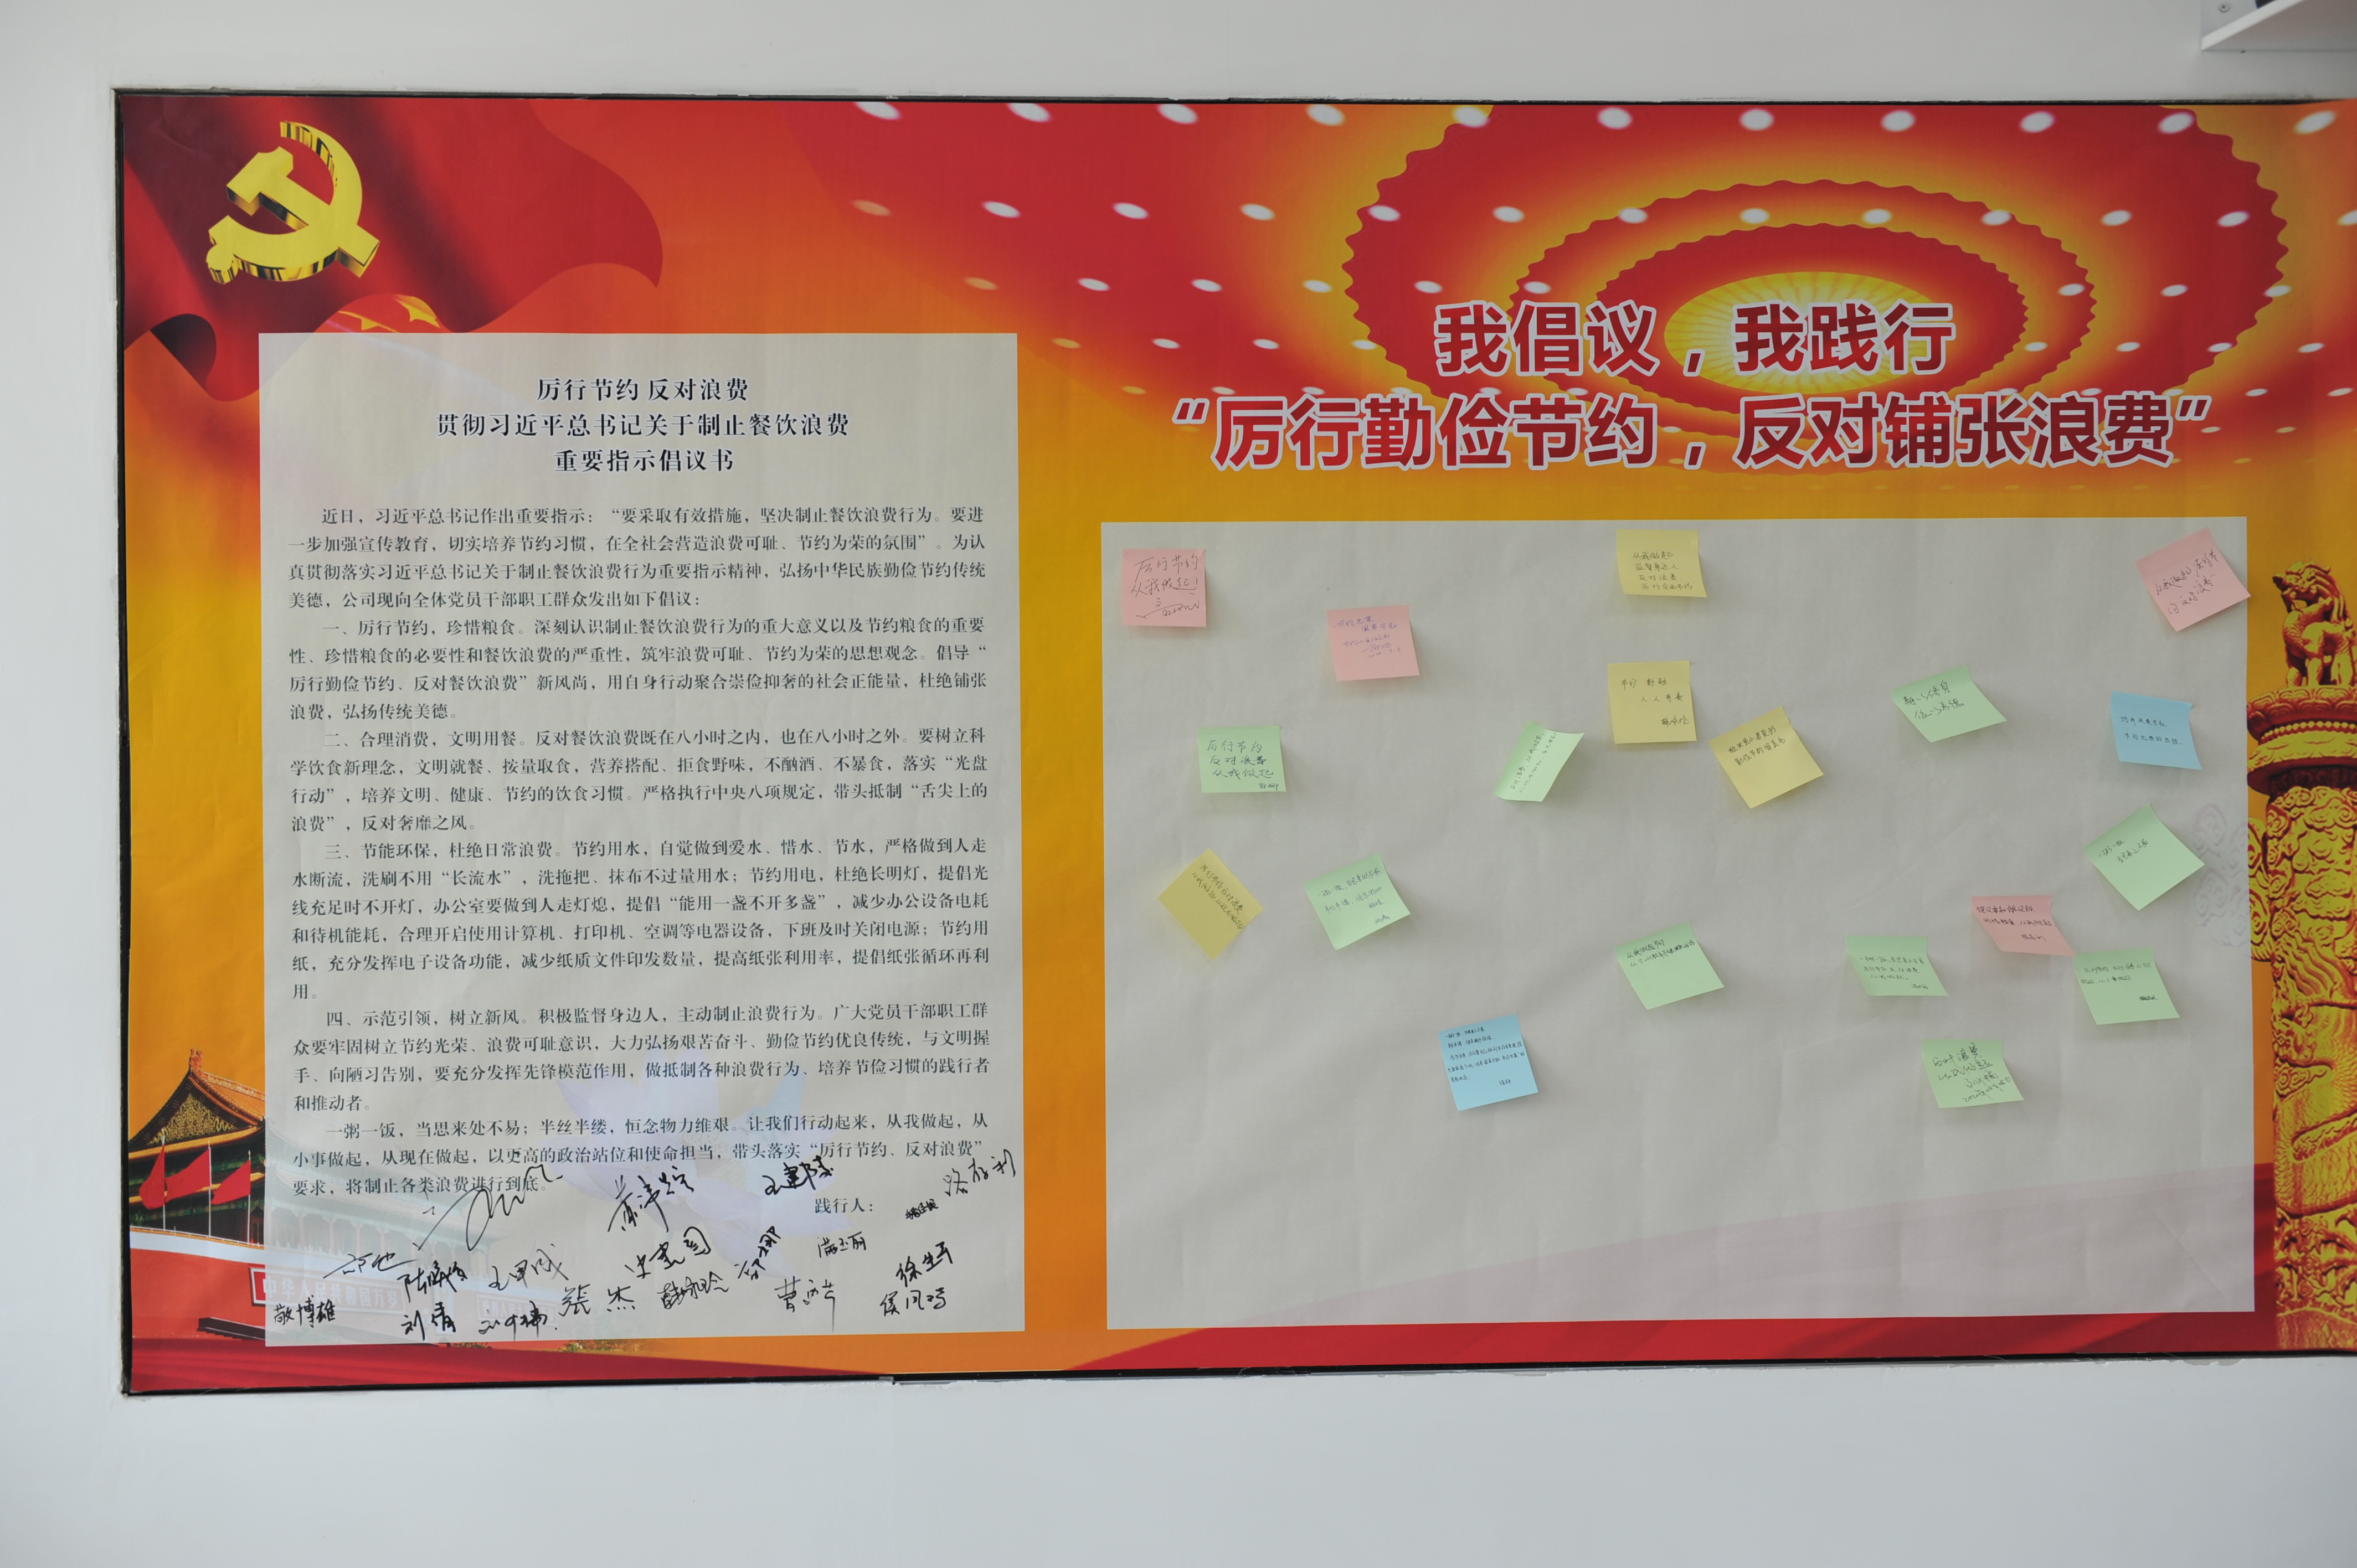 厉行节约 反对浪费
贯彻习近平总书记关于制止餐饮浪费
重要指示倡议书
近日，习近平总书记作出重要指示：“要采取有效措施，坚决制止餐饮浪费行为。要进
一步加强宣传教育，切实培养节约习惯，在全社会营造浪费可耻、节约为荣的氛围”。为认
真贯彻落实习近平总书记关于制止餐饮浪费行为重要指示精神，弘扬中华民族勤俭节约传统
美德，公司现向全体党员干部职工群众发出如下倡议：
一、厉行节约，珍惜粮食。深刻认识制止餐饮浪费行为的重大意义以及节约粮食的重要
性、珍惜粮食的必要性和餐饮浪费的严重性，筑牢浪费可耻、节约为荣的思想观念。倡导“
厉行勤俭节约、反对餐饮浪费”新风尚，用自身行动聚合崇俭抑奢的社会正能量，杜绝铺张
浪费，弘扬传统美德。
二、合理消费，文明用餐。反对餐饮浪费既在八小时之内，也在八小时之外。要树立科
学饮食新理念，文明就餐、按量取食，营养搭配、拒食野味，不酗酒、不暴食，落实“光盘
行动”，培养文明、健康、节约的饮食习惯。严格执行中央八项规定，带头抵制“舌尖上的
浪费”，反对奢靡之风。
三、节能环保，杜绝日常浪费。节约用水，自觉做到爱水、惜水、节水，严格做到人走
水断流，洗刷不用“长流水”，洗拖把、抹布不过量用水；节约用电，杜绝长明灯，提倡光
线充足时不开灯，办公室要做到人走灯熄，提倡“能用一盏不开多盏”，减少办公设备电耗
和待机能耗，合理开启使用计算机、打印机、空调等电器设备，下班及时关闭电源；节约用
纸，充分发挥电子设备功能，减少纸质文件印发数量，提高纸张利用率，提倡纸张循环再利
用。
四、示范引领，树立新风。积极监督身边人，主动制止浪费行为。广大党员干部职工群
众要牢固树立节约光荣、浪费可耻意识，大力弘扬艰苦奋斗、勤俭节约优良传统，与文明握
手、向陋习告别，要充分发挥先锋模范作用，做抵制各种浪费行为、培养节俭习惯的践行者
和推动者。
一粥一饭，当思来处不易；半丝半缕，恒念物力维艰。让我们行动起来，从我做起，从
小事做起，从现在做起，以更高的政治站位和使命担当，带头落实“厉行节约、反对浪费”
要求，将制止各类浪费进行到底。
践行人：
路存利
王建陵
史建国
徐生平
张杰
刘倩
敬博雄
我倡议，我践行
“厉行勤俭节约，反对铺张浪费”
厉行节约
从我做起！
从我做起
监督身边人
反对浪费
节约 粮食
人人有责
厉行节约
反对浪费
从我做起
反对浪费
从我做起